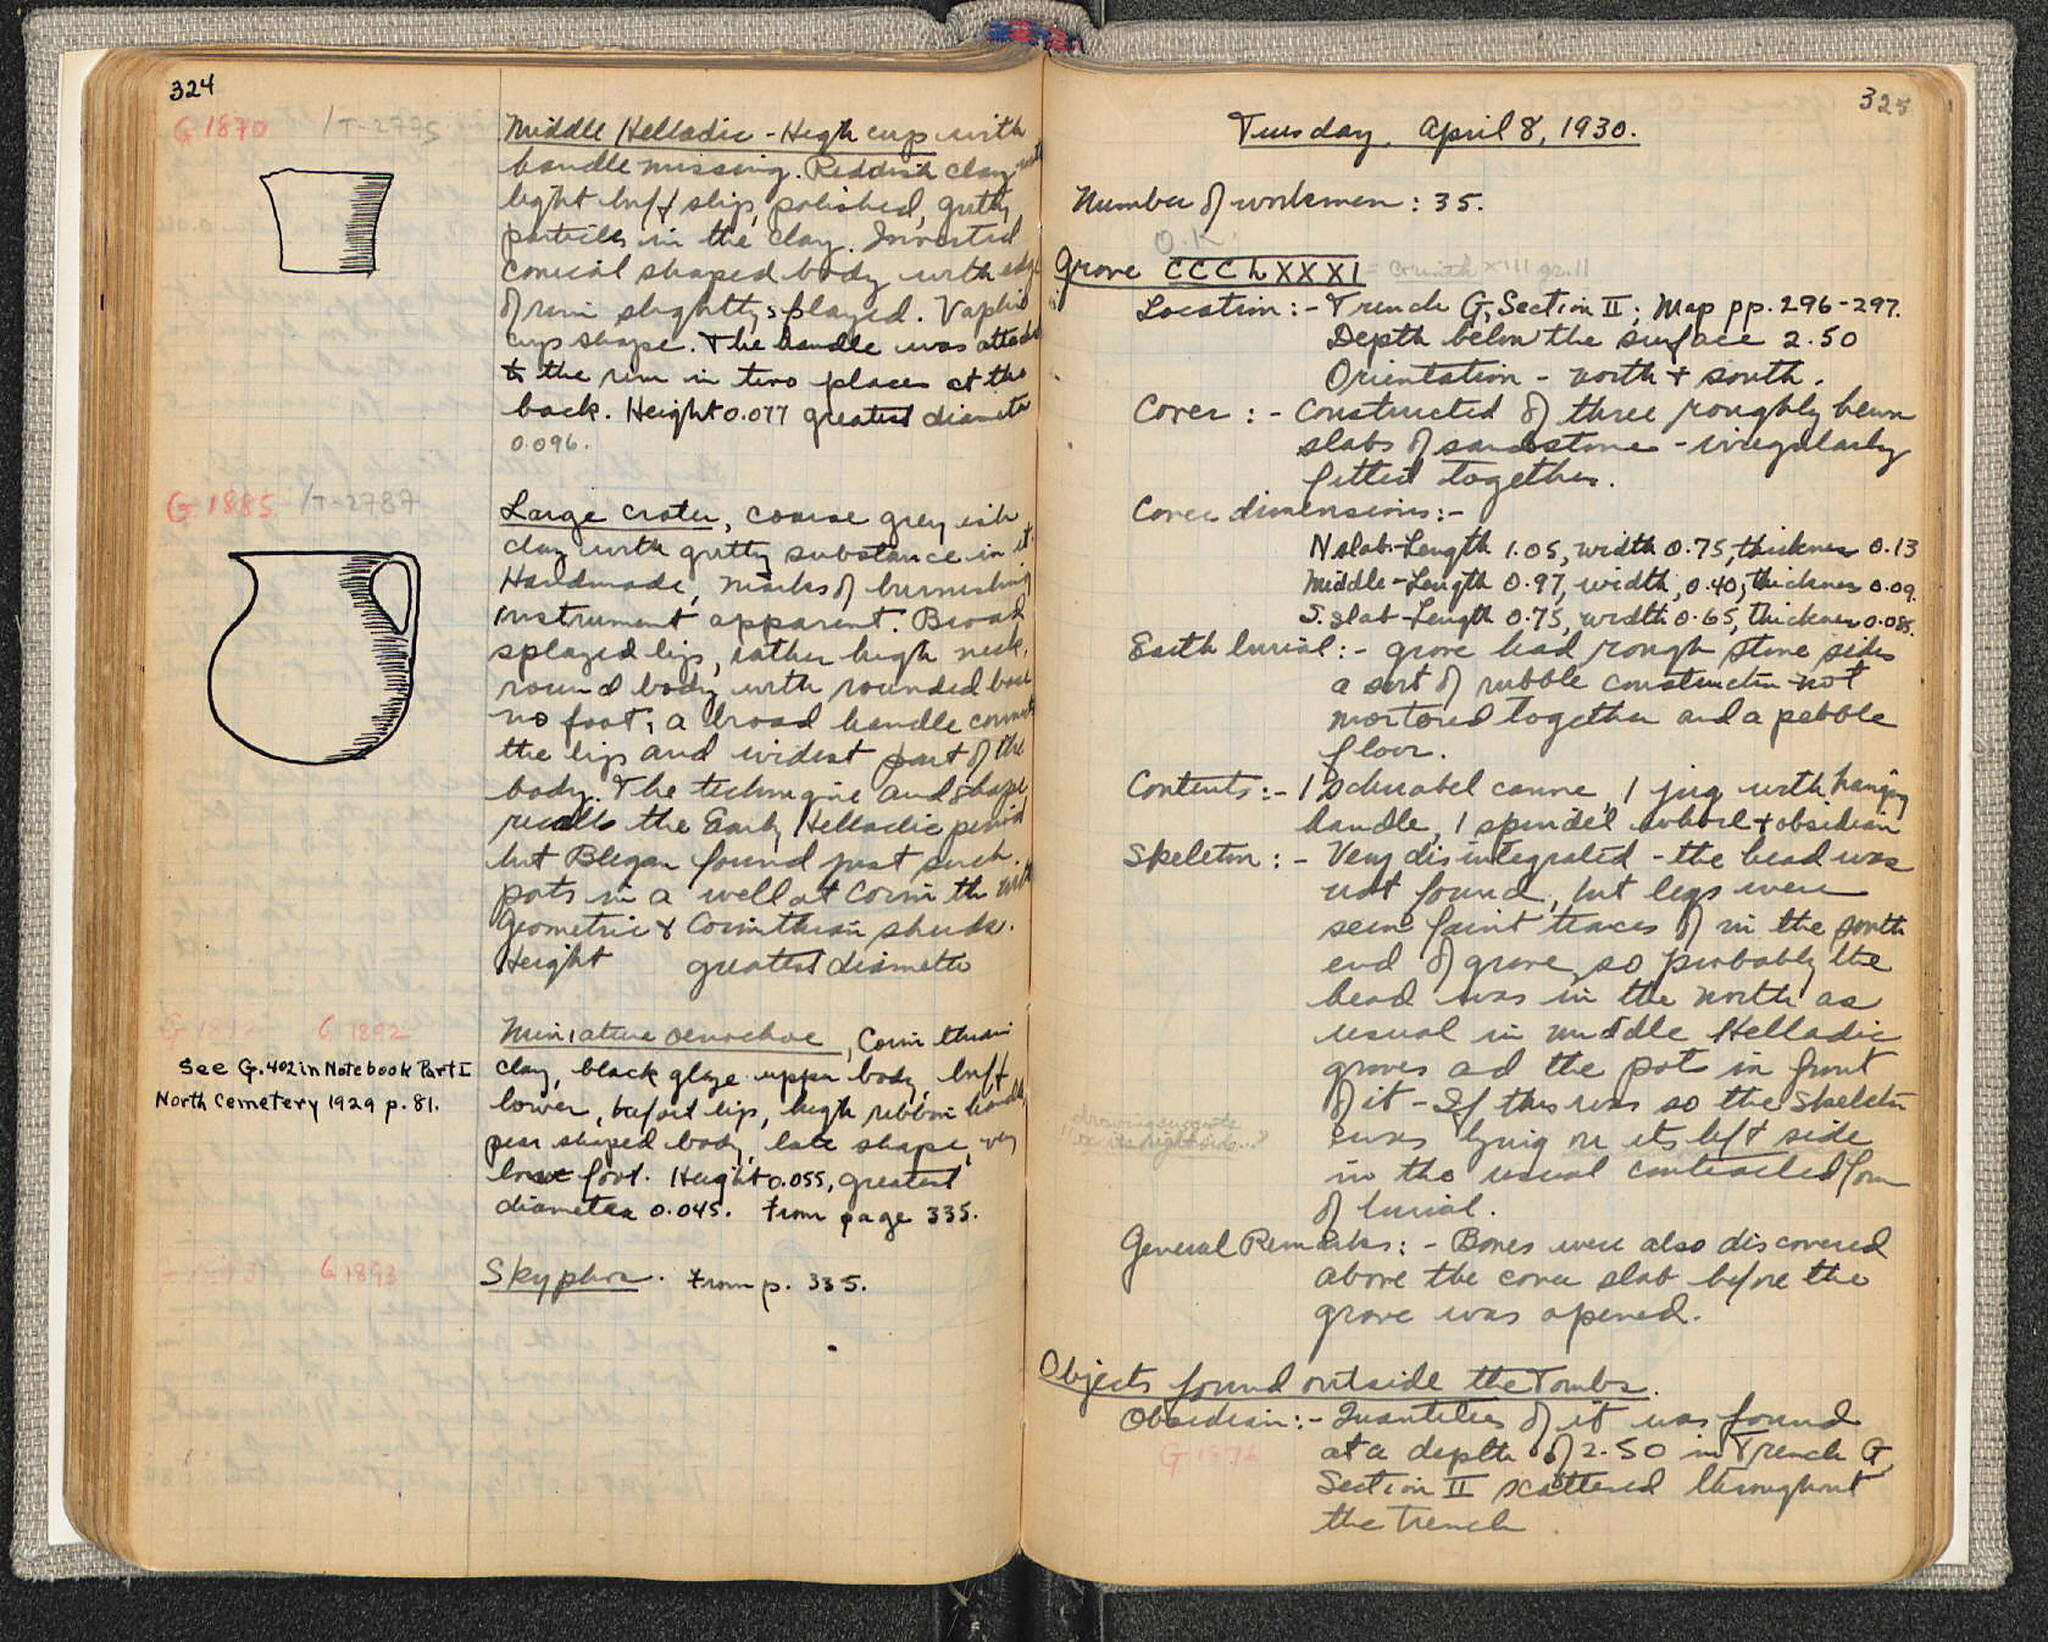 324
G 1870 /T-2775
Middle Helladic - High cup with
handle missing. Reddish clay with
light buff slip, polished, gritty
particles in the clay. Inverted
conical shaped body with edge
of rim slightly splayed. Vaphio
cup shape. The handle was attached
to the rim in two places at the
back. Height 0.077 greatest diameter
0.096.
G 1885 /T-2787
Large crater, coarse greyish
clay with gritty substance in it.
Handmade, marks of burnishing
instrument apparent. Broad
splayed lip, rather high neck,
round body with rounded base
no foot; a broad handle connects
the lip and widest part of the
body. The technique and shape
recalls the Early Helladic period
but Blegen found just such
pots in a well at Corinth with
Geometric & Corinthian sherds.
Height greatest diameter
G 1892 G 1892
See G. 402 in Notebook Part I
North Cemetery 1929 p. 81.
Miniature oenochoe, Corinthian
clay, black glaze upper body, buff
lower, trefoil lip, high ribbon handle,
pear shaped body, late shape, very
low foot. Height 0.055, greatest
diameter 0.045. From page 335.
G 1893
Skyphos. From p. 335.
325
Tuesday, April 8, 1930.
Number of workmen: 35.
O.K.
Grave CCCLXXXI = Corinth XIII gr. 11
Location:- Trench G, Section II; Map pp. 296-297.
Depth below the surface 2.50
Orientation - north & south.
Cover:- Constructed of three roughly hewn
slabs of sandstone - irregularly
fitted together.
Cover dimensions:-
N slab-Length 1.05, width 0.75, thickness 0.13
Middle-Length 0.97, width, 0.40, thickness 0.09.
S. slab-Length 0.75, width 0.65, thickness 0.085.
Earth burial:- grave had rough stone sides
a sort of rubble construction not
mortored together and a pebble
floor.
Contents:- 1 schnabel canne, 1 jug with hanging
handle, 1 spindel whorl & obsidian
Skeleton:- Very disintegrated - the head was
not found, but legs were
seen faint traces of in the south
end of grave, so probably the
head was in the north as
usual in Middle Helladic
graves ad the pots in front
of it - If this was so the skeleton
was lying on its left side
in the usual contracted form
of burial.
General Remarks:- Bones were also discovered
above the cover slab before the
grave was opened.
Objects found outside the Tombs.
Obsidian:- Quantities of it was found
G 1876
at a depth of 2.50 in Trench G,
Section II scattered throughout
the trench.